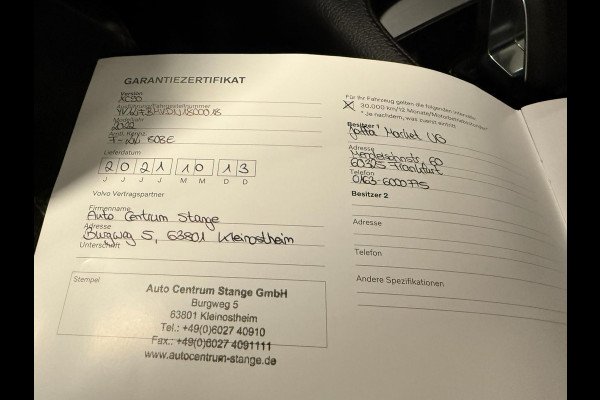 GARANTIEZERTIFIKAT
Version
XC90
Ausführung/Fahrgestellnummer
Modelljahr
2022
Amtl. Kennz.
608E
Lieferdatum
2021 10 13
J J J J M M D D
Volvo Vertragspartner
Firmenname
Auto Centrum Stange
Adresse
Burgweg 5, 63801 Kleinostheim
Unterschrift
Stempel
Auto Centrum Stange GmbH
Burgweg 5
63801 Kleinostheim
Tel.: +49(0)6027 40910
Fax.: +49(0)6027 4091111
www.autocentrum-stange.de
Für Ihr Fahrzeug gelten die folgenden Intervalle:
30.000 km/12 Monate/Motorbetriebsstunden*
* Je nachdem, was zuerst eintritt.
Besitzer 1
Jatta Market UG
Adresse
60
60325 Frankfurt
Telefon
0163-6000775
Besitzer 2
Adresse
Telefon
Andere Spezifikationen